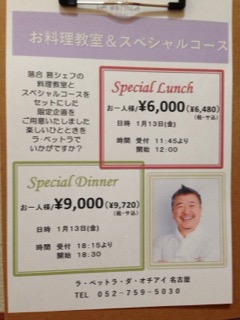 お料理教室＆スペシャルコース
落合 務シェフの
料理教室と
スペシャルコースを
セットにした
限定企画を
ご用意いたしました
楽しいひとときを
ラ・ベットラで
いかがですか？
Special Lunch
お一人様/¥6,000(¥6,480)
(税・サ込)
日時 1月13日(金)
時間 受付 11:45より
開始 12:00
Special Dinner
お一人様/¥9,000(¥9,720)
(税・サ込)
日時 1月13日(金)
時間 受付 18:15より
開始 18:30
ラ・ベットラ・ダ・オチアイ 名古屋
TEL 052-759-5030